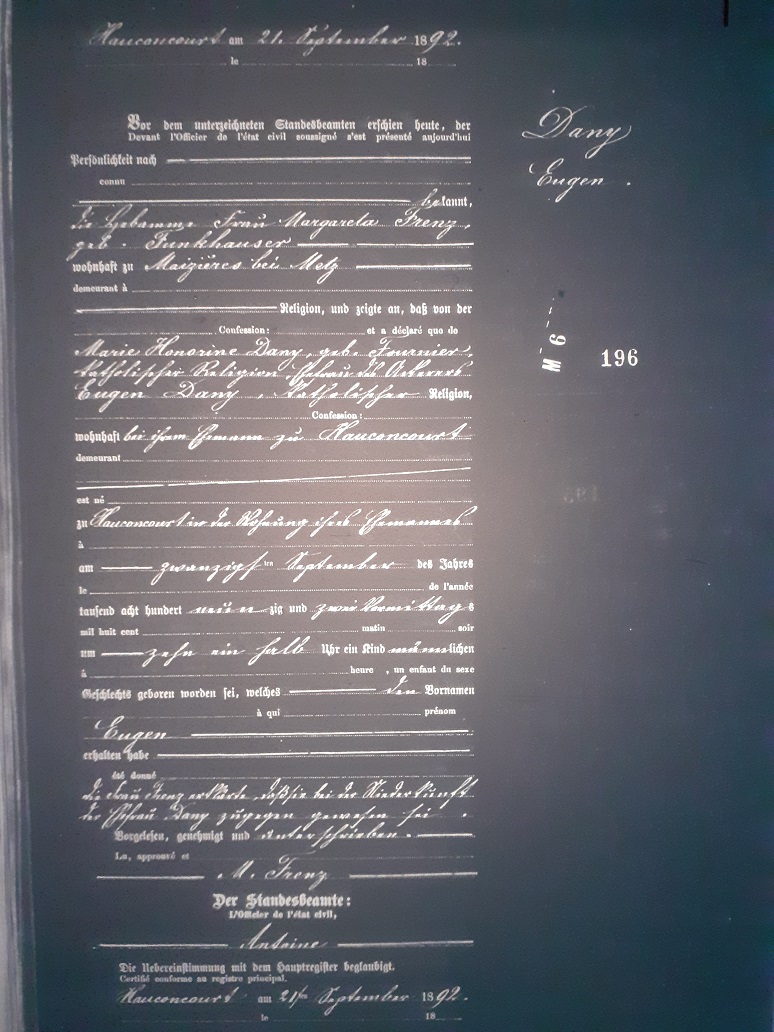 Hauconcourt am 21. September 1892.
le 18
Vor dem unterzeichneten Standesbeamten erschien heute, der
Devant l'Officier de l'état civil soussigné s'est présenté aujourd'hui
Persönlichkeit nach
connu
bekannt,
die Hebamme Frau Margareta Frenz,
geb. Funkhauser
wohnhaft zu Maizières bei Metz
demeurant à
Religion, und zeigte an, daß von der
Confession: et a déclaré que de
Marie Honorine Dany, geb. Fournier,
katholischer Religion, Ehefrau des Ackerers
Eugen Dany, katholischer Religion,
Confession:
wohnhaft bei ihrem Ehemann zu Hauconcourt
demeurant
est né
zu Hauconcourt in der Wohnung ihres Ehemannes
à
am zwanzigsten September des Jahres
le de l'année
tausend acht hundert neunzig und zwei Vormittags
mil huit cent matin soir
um zehn ein halb Uhr ein Kind männlichen
à heure , un enfant du sexe
Geschlechts geboren worden sei, welches den Vornamen
à qui prénom
Eugen
erhalten habe
été donné
die Frau Frenz erklärte, daß sie bei der Niederkunft
der Ehefrau Dany zugegen gewesen sei.
Vorgelesen, genehmigt und unterschrieben.
Lu, approuvé et
M. Frenz
Der Standesbeamte:
L'Officier de l'état civil,
Antoine
Die Uebereinstimmung mit dem Hauptregister beglaubigt.
Certifié conforme au registre principal.
Hauconcourt am 21ten September 1892.
le 18
Dany
Eugen.
M 6
196